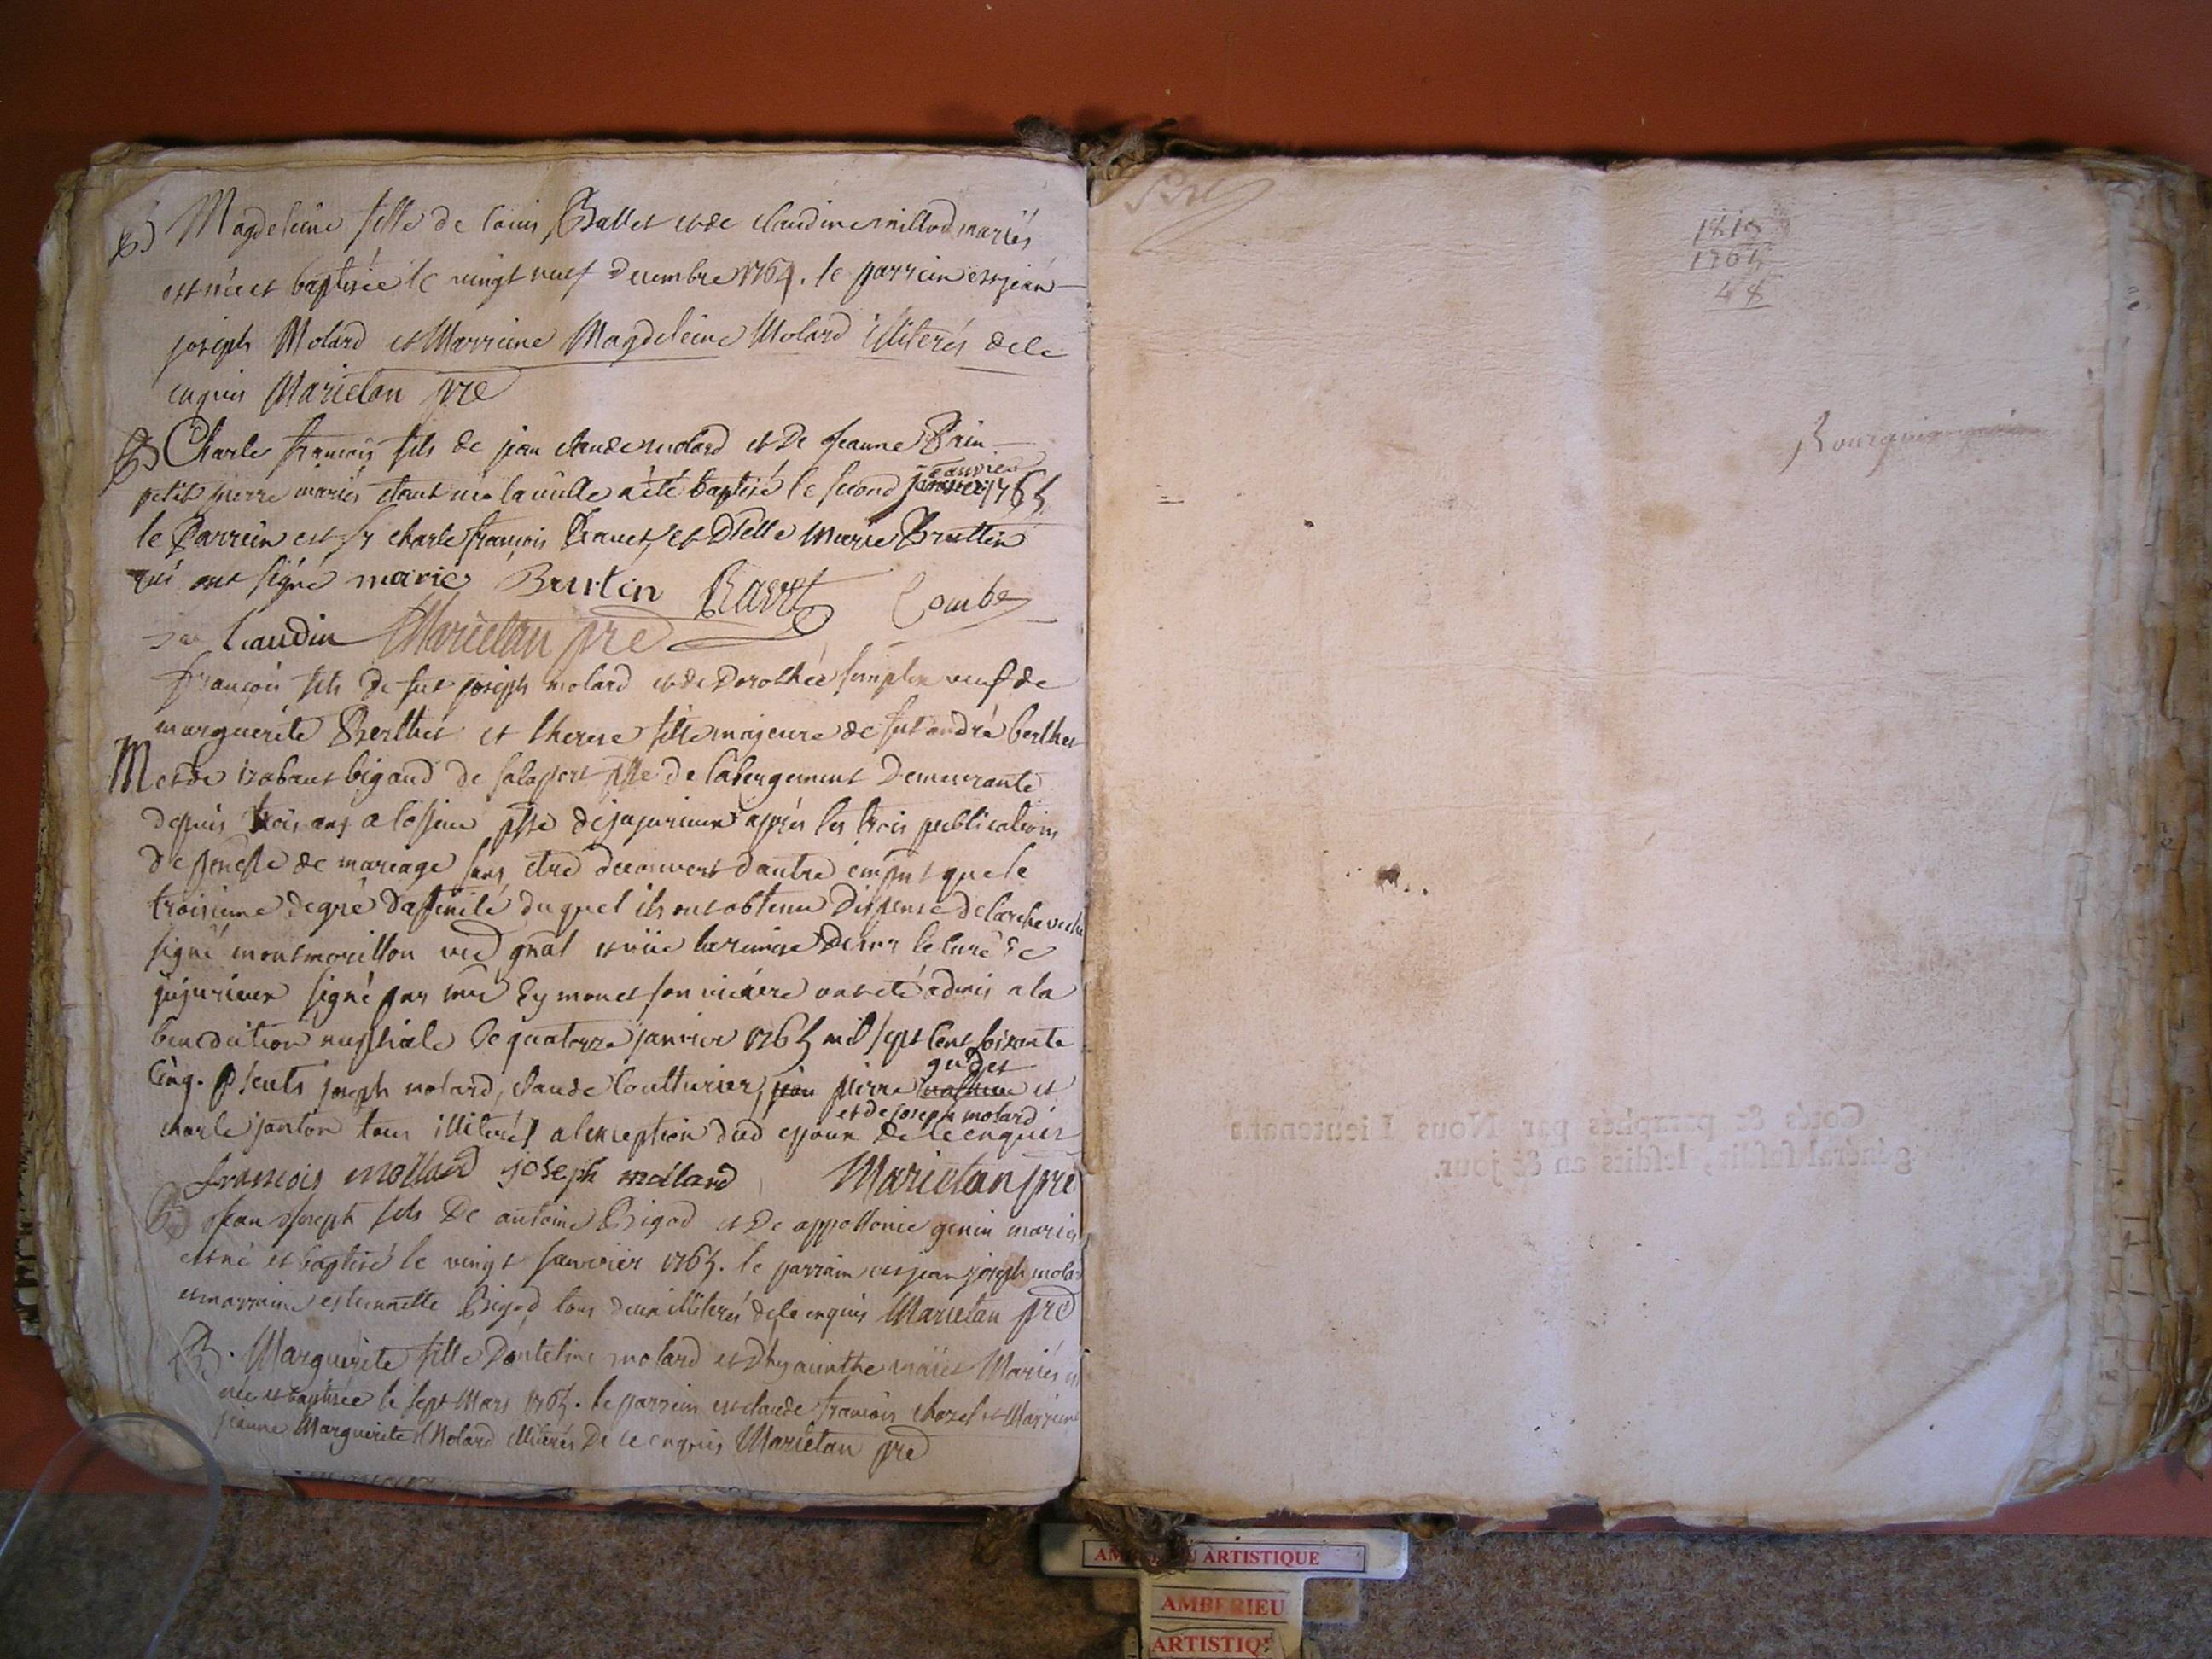 B) Magdeleine fille de Louis Ballet et de claudine millod mariés
est née et baptisée le vingt neuf decembre 1764. le parrein est jean
joseph Molard et Marreine Magdeleine Molard illiterés de ce
enquis Marietan pre
B) Charle françois fils de jean claude molard et De Jeanne Prin
petit pierre mariés etant né la veille a été baptisé le second janvier 1765
le Parrein est sr charle françois Ravet et Dlle Marie Bruttin
qui ont signé marie Burtin Ravet Combe
Laudin Marietan pre
françois fils de fut joseph molard et de Dorothée veuf de
marguerite Berthet et therese fille majeure de fut andré berthet
M et de bigaud de psse de labergement Demeurante
depuis trois ans a psse de jujurieux après les trois publications
de de mariage sans etre decouvert dautre empnt que le
troisieme degré dafinité duquel ils ont obtenu Dispense de larcheveché
signé montmorillon vic gnal et vüe la remise de mr le curé de
jujurieux signé par mre Eymonet son vicaire ont été admis a la
benediction nuptiale le quatorze janvier 1765 mil sept cent soixante
cinq. Psents joseph molard, claude Coutturier, jean pierre gudet et
et de joseph molard
charle janton tous illiterés a lexception dud epoux de ce enquis
francois mollard joseph molard Marietan pre
B) Jean Joseph fils De antoine Bigod et De appollonie genin mariés
est né et baptisé le vingt Janvier 1765. le parrain est jean joseph molard
et marraine estiennette Bigod tous deux illiterés de ce enquis Marietan pre
B. Marguerite fille Dantelme molard et Dhyacinthe Mariés est
née et baptisée le sept Mars 1765. le parrein est claude françois chozel et Marreine
jeanne Marguerite Molard illiterés De ce enquis Marietan pre
1813
1765
48
Cotés & paraphés par Nous Lieutenant
général susdit, lesdits an & jour.
AMBERIEU ARTISTIQUE
AMBERIEU
ARTISTIQUE